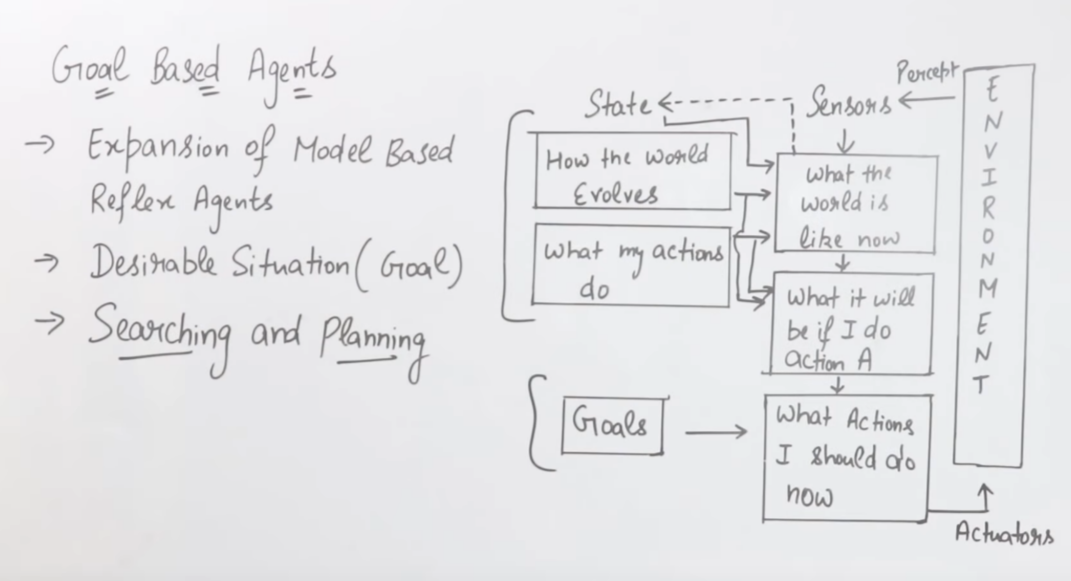 Goal Based Agents
→ Expansion of Model Based
Reflex Agents
→ Desirable Situation (Goal)
→ Searching and Planning
Percept
State
Sensors
How the world
Evolves
What my actions
do
What the
world is
like now
What it will
be if I do
action A
Goals
What Actions
I should do
now
ENVIRONMENT
Actuators